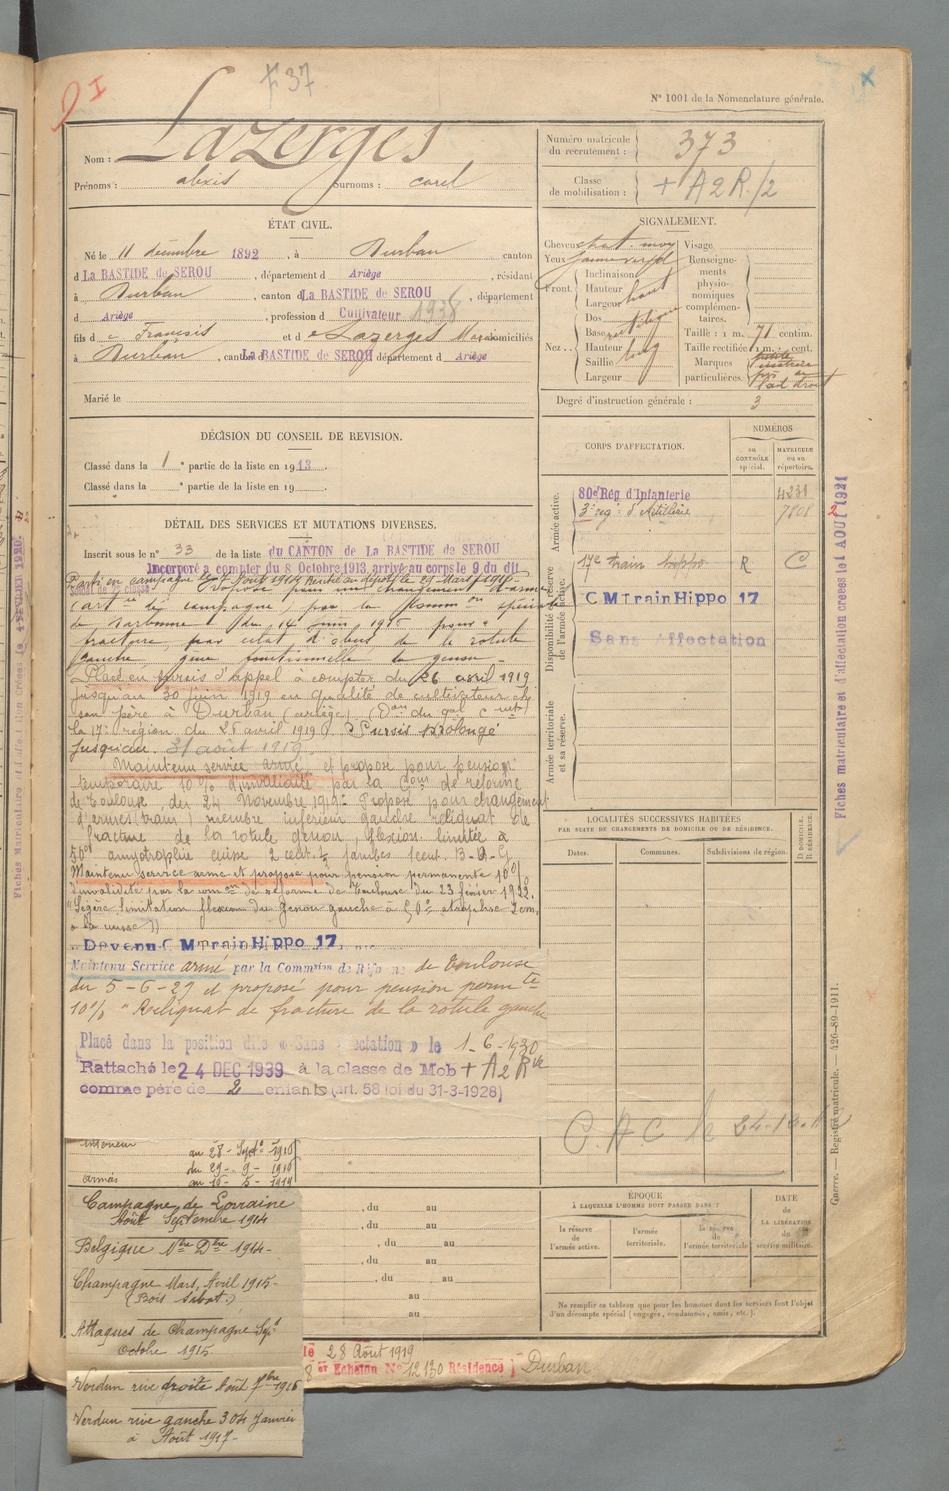 I
F 37
N° 1001 de la Nomenclature générale.
Nom : Lazerges
Prénoms : alexis Surnoms : carel
ÉTAT CIVIL.
Né le 11 décembre 1892, à Durban canton
d La BASTIDE de SEROU, département d Ariège, résidant
à Durban, canton d La BASTIDE de SEROU, département
d Ariège, profession d Cultivateur 1938
fils d e François et d e Lazerges domiciliés
à Durban, canton d La BASTIDE de SEROU département d Ariège
Marié le
DÉCISION DU CONSEIL DE REVISION.
Classé dans la 1e partie de la liste en 1913
Classé dans la e partie de la liste en 19
DÉTAIL DES SERVICES ET MUTATIONS DIVERSES.
Inscrit sous le n° 33 de la liste du CANTON de La BASTIDE de SEROU
Incorporé a compter du 8 Octobre 1913, arrivé au corps le 9 du dit
Soldat de 2e classe
Parti en campagne le 7 Aout 1914 Rentré au dépôt le 29 Mars 1916
Proposé pour un changement d'arme
de campagne, par la Common spéciale
de Narbonne du 14 Juin 1916 pour "
fracture, par éclat d'obus, de la rotule
gauche, gêne fonctionnelle du genou
Placé en sursis d'appel à compter du 26 avril 1919
jusqu'au 30 juin 1919 en qualité de cultivateur chez
son père à Durban (ariège) (Don du gal ct
la 17e région du 25 avril 1919) Sursis prolongé
jusqu'au 31 août 1919.
Maintenu service armé, et proposé pour pension
temporaire 10% d'invalidité par la Com de réforme
de Toulouse, du 24 Novembre 1919. Proposé pour changement
d'armes (train) membre inférieur gauche reliquat de
fracture de la rotule genou, flexion limitée à
50° amyotrophie cuisse 2 cent. ½ jambes 1 cent.
Maintenu service armé et proposé pour pension permanente 10%
d'invalidité par la com on de réforme de Toulouse du 23 février 1922.
"Légère limitation flexion du Genou gauche à 50°, atrophie 2 cm,
à la cuisse"
Devenu C M Train Hippo 17,
Maintenu Service armé par la Commson de Réforme de Toulouse
du 5-6-29 et proposé pour pension permte
10% "Reliquat de fracture de la rotule gauche
Placé dans la position dite « Sans Affectation » le 1-6-1930
Rattaché le 24 DEC 1939 à la classe de Mob + A2R/2
comme père de 2 enfants (art. 58 loi du 31-3-1928)
Intérieur
au 28 - Septe 1916
du 29 - 9 - 1916
armées
au 16 - 5 - 1919
Campagne de Lorraine
Août Septembre 1914
Belgique Nbre Dbre 1914-
Champagne Mars, Avril 1915-
(Bois Sabot.)
Attaques de Champagne Sepe
Octobre 1915
Verdun rive droite Août 7bre 1916
Verdun rive gauche 304 Janvier
à Août 1917-
, du au
, du au
, du au
, du au
, du au
au
au
le 28 Août 1919
Echelon N° 12130 Résidence } Durban
Numéro matricule
du recrutement : 373
Classe
de mobilisation : + A2R/2
SIGNALEMENT.
Cheveux chat. moy
Yeux
Front. Inclinaison
Hauteur haut
Largeur
Nez... Dos rectiligne
Base
Hauteur
Saillie
Largeur
Visage
Renseigne-
ments
physio-
nomiques
complémen-
taires.
Taille : 1 m. 71 centim.
Taille rectifiée : 1 m. cent.
Marques
particulières.
Degré d'instruction générale : 3
CORPS D'AFFECTATION.
NUMÉROS
au
CONTRÔLE
spécial.
MATRICULE
ou au
répertoire.
Armée active.
80e Rég d'Infanterie 4231
3e régt d'Artillerie
Disponibilité et réserve
de l'armée active.
17e train hippo R C
C M Train Hippo 17
Sans Affectation
Armée territoriale
et sa réserve.
LOCALITÉS SUCCESSIVES HABITÉES
PAR SUITE DE CHANGEMENTS DE DOMICILE OU DE RÉSIDENCE.
Dates.
Communes.
Subdivisions de région.
D. DOMICILE.
R. RÉSIDENCE.
C.A.C le
ÉPOQUE
À LAQUELLE L'HOMME DOIT PASSER DANS :
la réserve
de
l'armée active.
l'armée
territoriale.
la réserve
de
l'armée territoriale
DATE
de
LA LIBÉRATION
du
service militaire.
Ne remplir ce tableau que pour les hommes dont les services font l'objet
d'un décompte spécial (engagés, condamnés, omis, etc.).
Fiches matriculaire et d'affectation créées le 1 AOUT 1921
Guerre. — Registre matricule. — 426-89-1911.